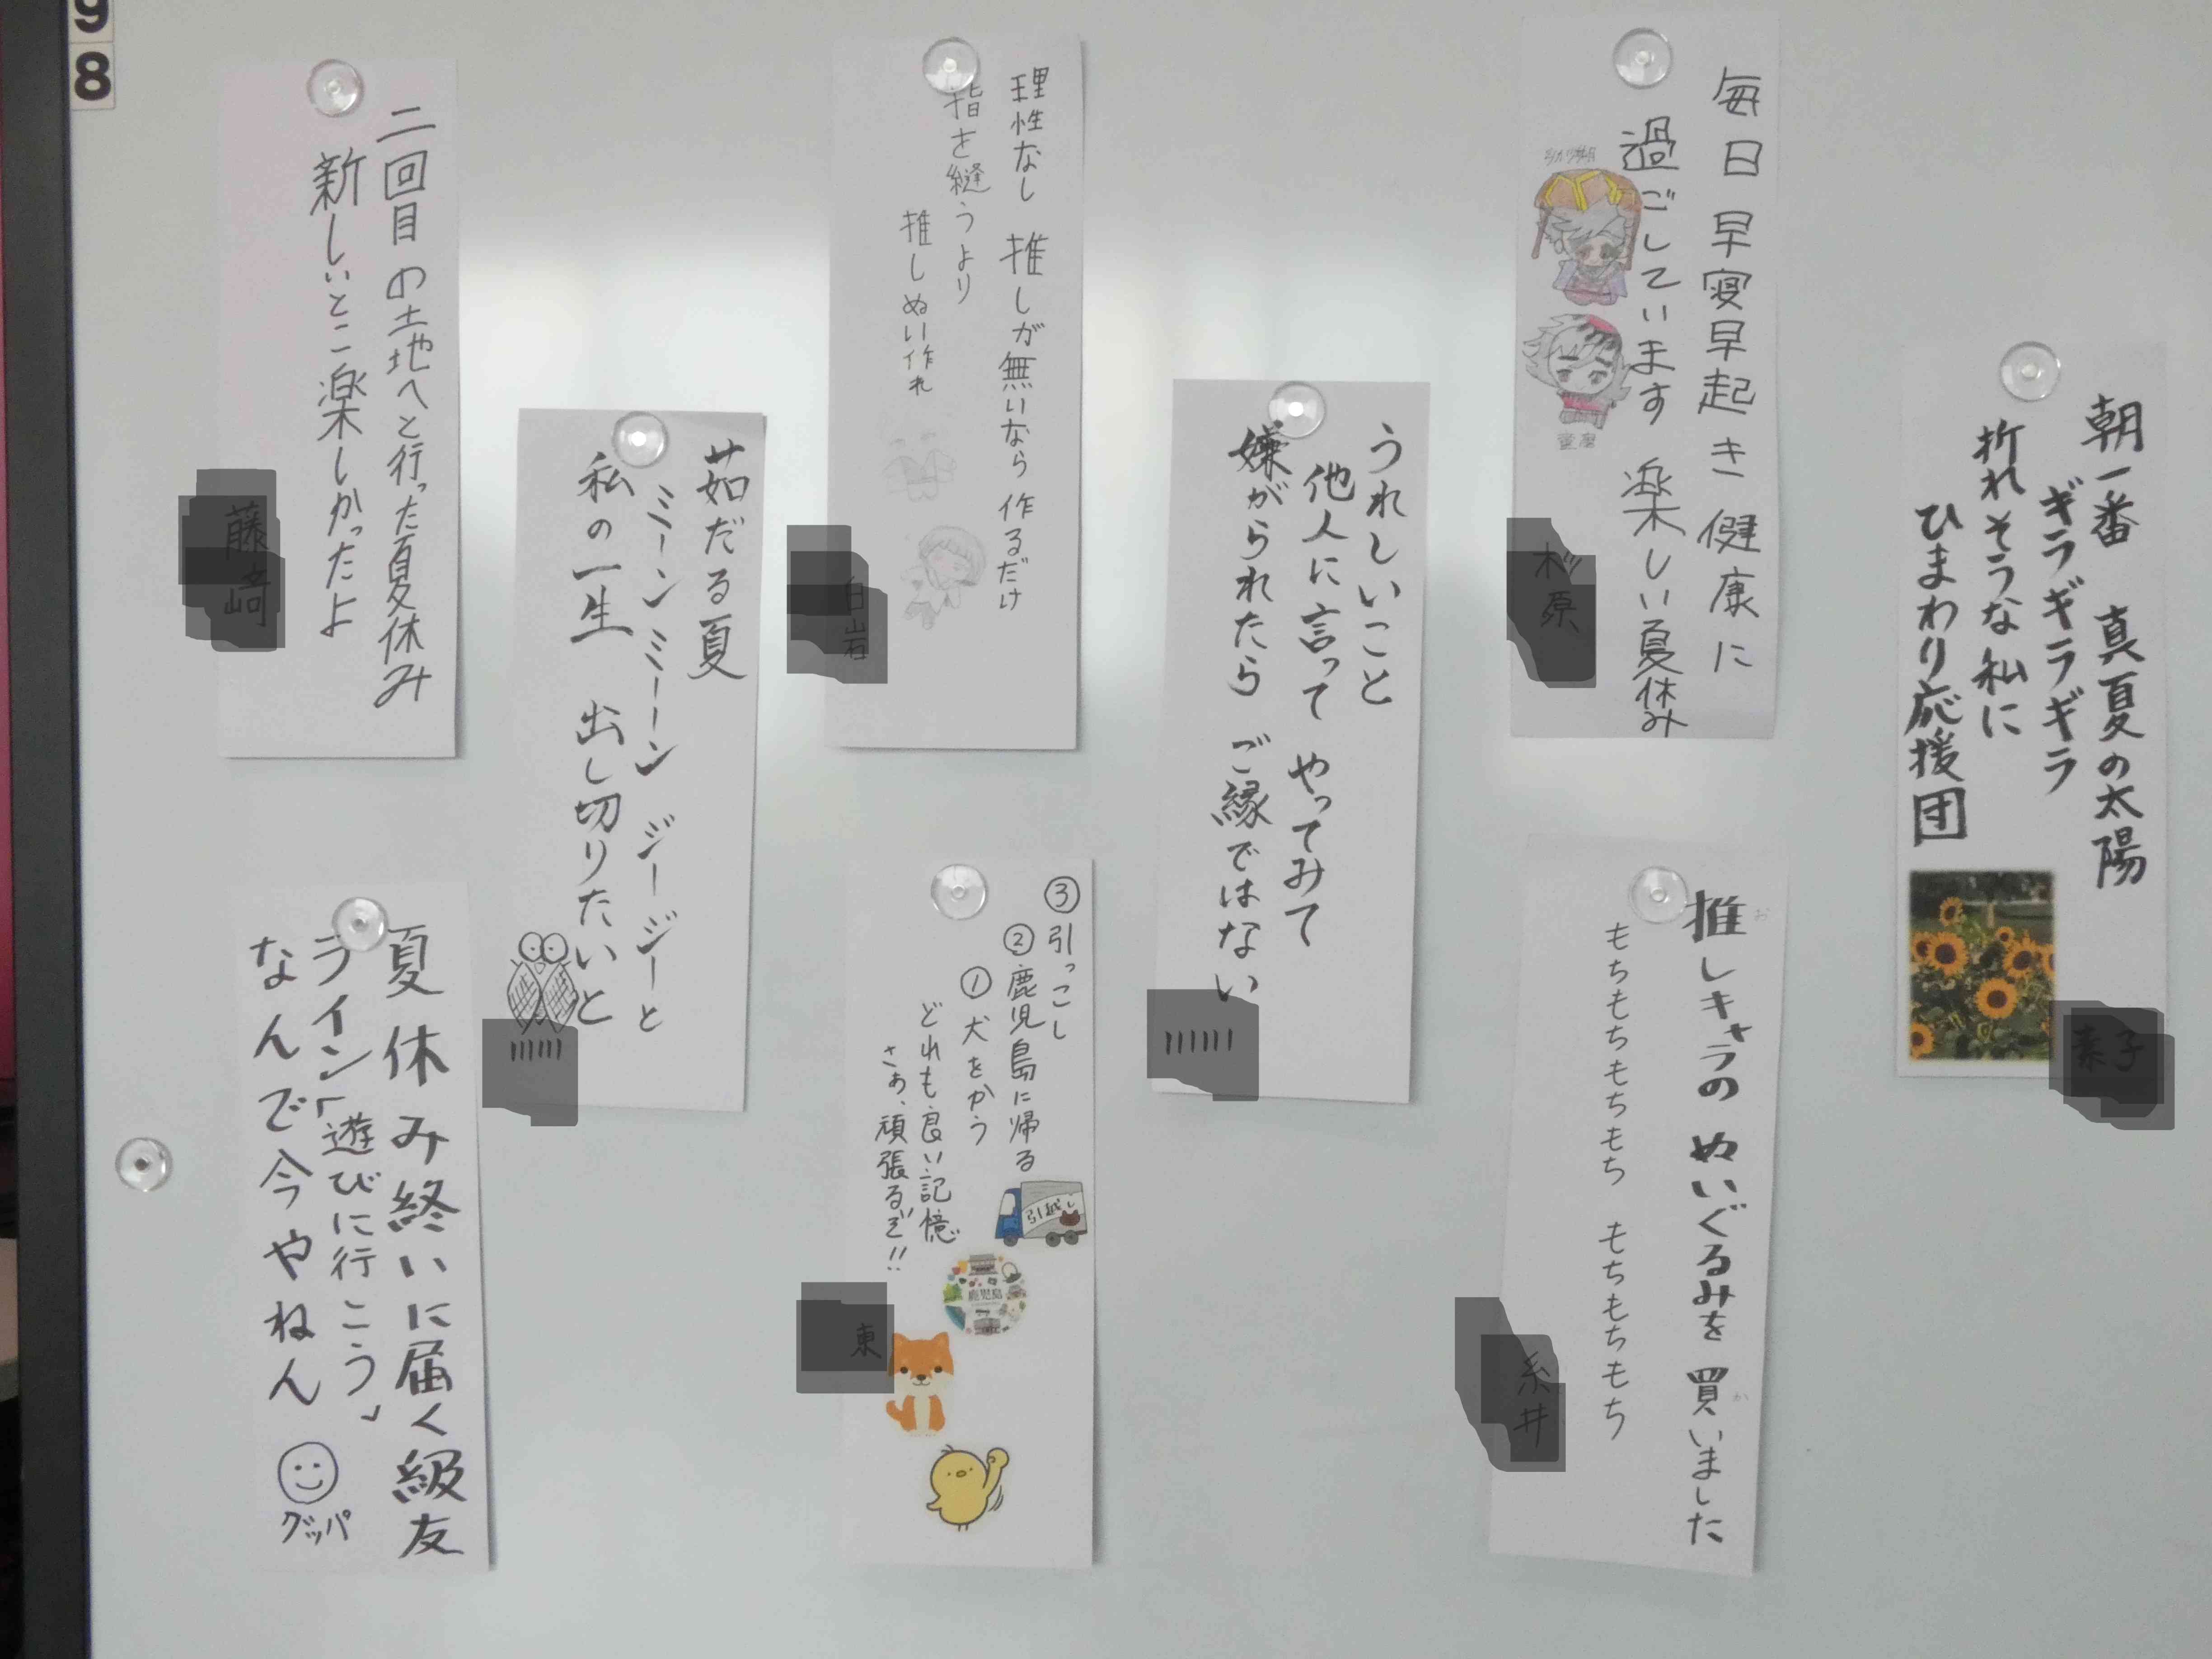 9
8
朝一番 真夏の太陽
ギラギラギラギラ
折れそうな私に
ひまわり応援団
素子
毎日早寝早起き健康に
過ごしています 楽しい夏休み
童磨
原
推しキャラの ぬいぐるみを 買いました
お
か
もちもちもちもち もちもちもち
糸井
うれしいこと
他人に言って やってみて
嫌がられたら ご縁ではない
理性なし 推しが無いなら 作るだけ
指を縫うより
推しぬい作れ
白岩
③引っこし
②鹿児島に帰る
①犬をかう
どれも良い記憶
さぁ、頑張るぞ!!
引越し
鹿児島
東
茹だる夏
ミーンミーン ジージーと
私の一生 出し切りたいと
二回目の土地へと行った夏休み
新しいとこ楽しかったよ
藤崎
夏休み終いに届く級友
ライン「遊びに行こう」
なんで今やねん
グッパ